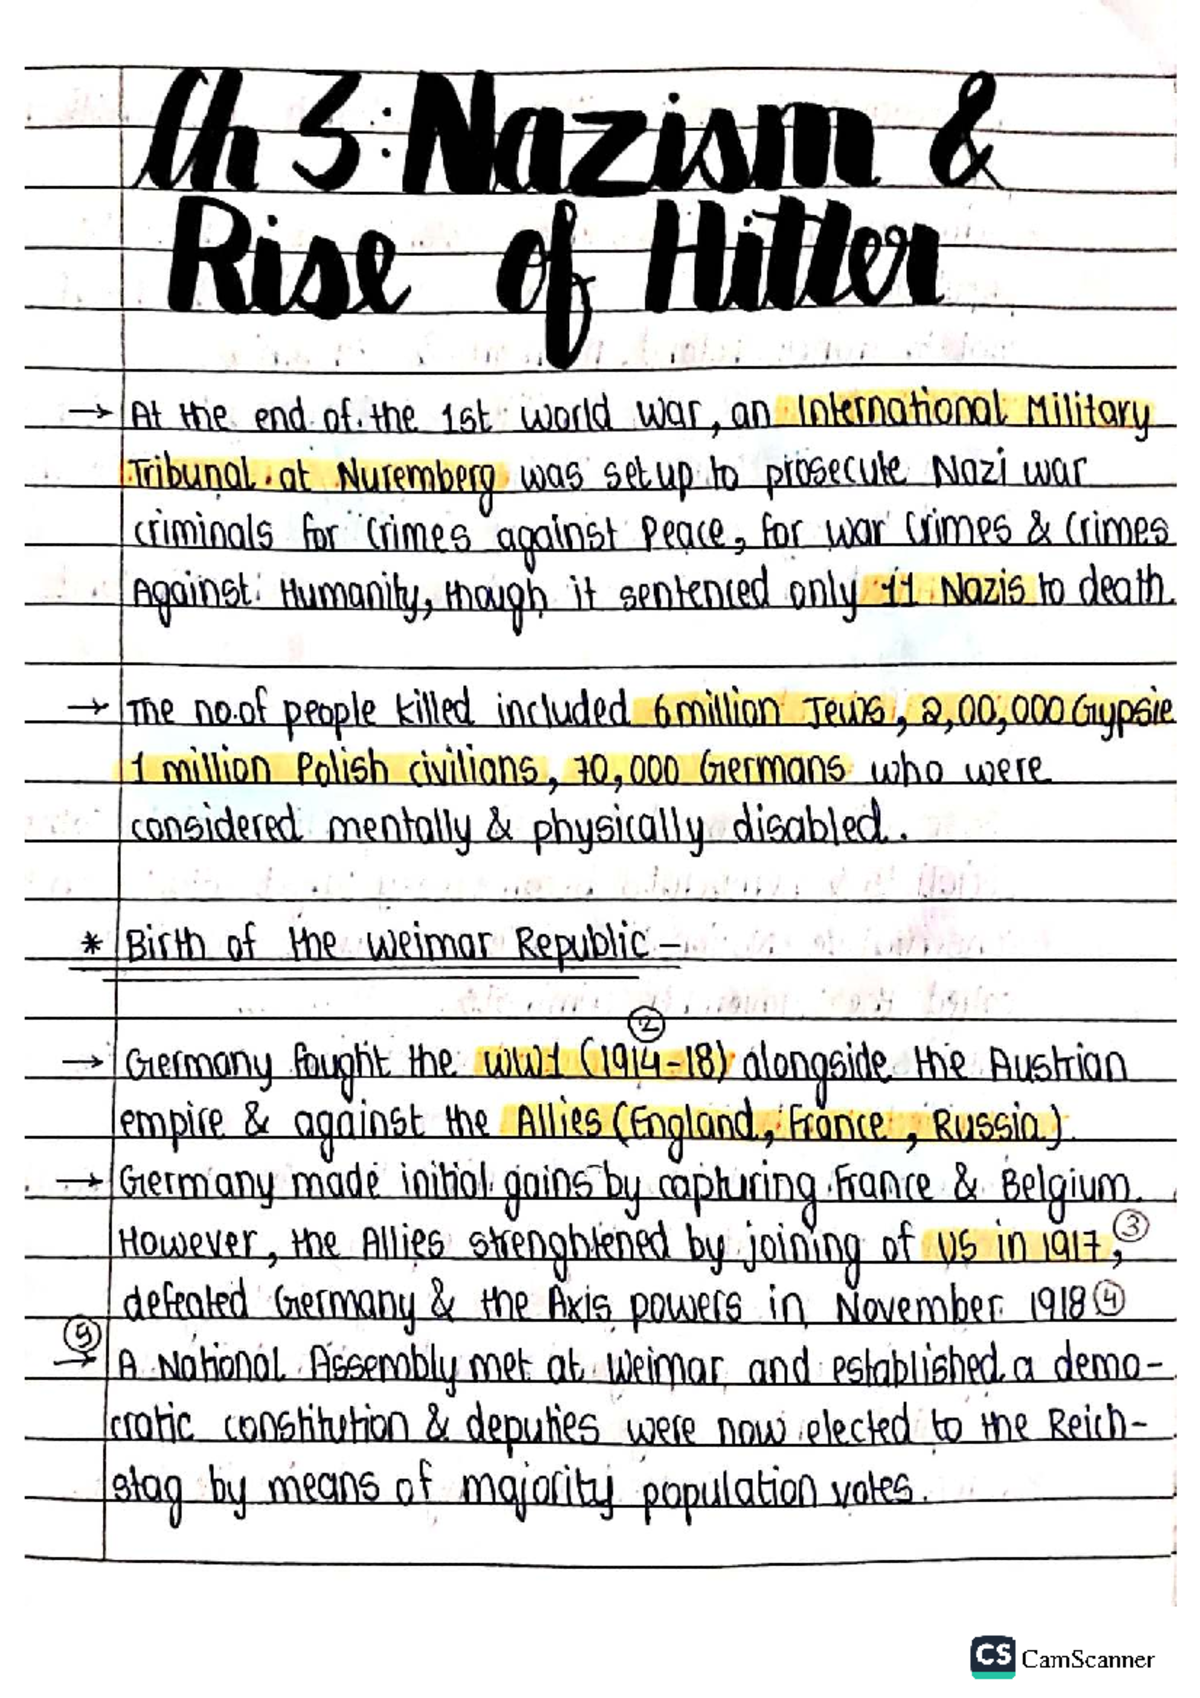 Ch 3: Nazism &
Rise of Hitler
→ At the end of the 1st world war, an International Military
Tribunal at Nuremberg was set up to prosecute Nazi war
criminals for Crimes against Peace, for war Crimes & Crimes
Against Humanity, though it sentenced only 11 Nazis to death.
→ The no. of people killed included 6 million Jews, 2,00,000 Gypsie
1 million Polish civilians, 70,000 Germans who were
considered mentally & physically disabled.
* Birth of the Weimar Republic –
②
→ Germany fought the WW1 (1914-18) alongside the Austrian
empire & against the Allies (England, France, Russia).
→ Germany made initial gains by capturing France & Belgium.
However, the Allies strenghtened by joining of US in 1917, ③
defeated Germany & the Axis powers in November 1918 ④
⑤
→ A National Assembly met at Weimar and established a demo-
cratic constitution & deputies were now elected to the Reich-
stag by means of majority population votes.
CS CamScanner